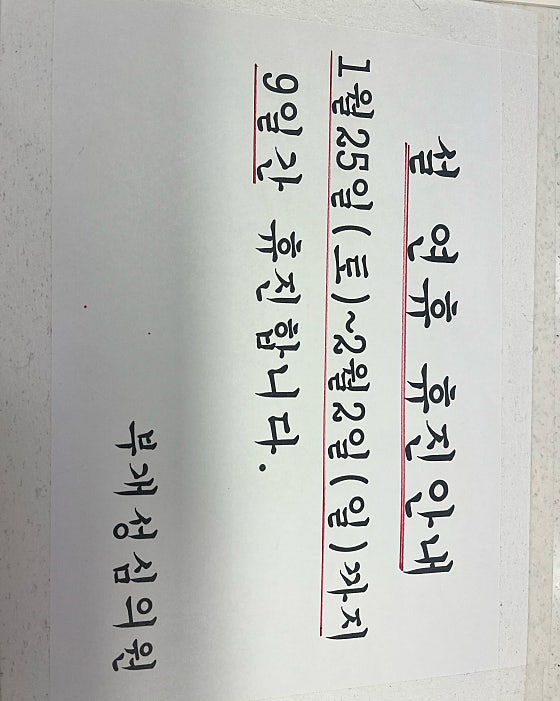 설 연휴 휴진안내
1월25일(토)~2월2일(일)까지
9일간 휴진합니다.
부개성심의원